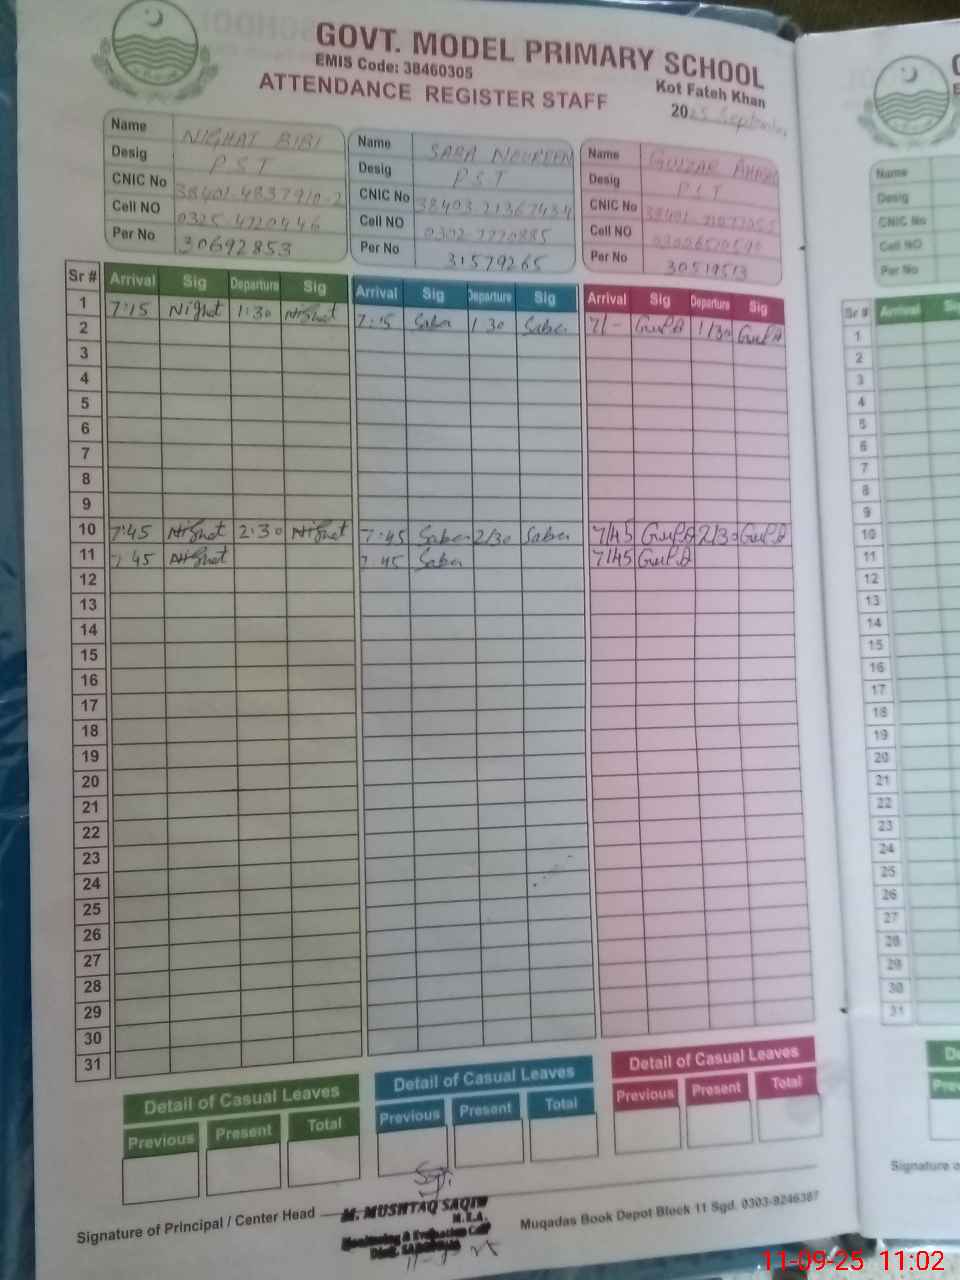 GOVT. MODEL PRIMARY SCHOOL
EMIS Code: 38460305
Kot Fateh Khan
ATTENDANCE REGISTER STAFF
2025 September
Name NIGHAT BIBI
Desig PST
CNIC No 38401-4837910-2
Cell NO 0325 4720446
Per No 30692853
Name SABA NOUREEN
Desig PST
CNIC No 38403 21367434
Cell NO 0302 7770885
Per No 31579265
Name GULZAR AHMAD
Desig PST
CNIC No
Cell NO 03026510590
Per No 30519513
Sr # Arrival Sig Departure Sig Arrival Sig Departure Sig Arrival Sig Departure Sig
1 7:15 Nighat 1:30 Nighat 7:15 Saba 1 30 Saba 7/- Gul A 1/30 Gul A
2
3
4
5
6
7
8
9
10 7:45 Nighat 2:30 Nighat 7:45 Saba 2/30 Saba 7/45 Gul A 2/30 Gul A
11 7 45 Nighat 7:45 Saba 7/45 Gul A
12
13
14
15
16
17
18
19
20
21
22
23
24
25
26
27
28
29
30
31
Detail of Casual Leaves Detail of Casual Leaves Detail of Casual Leaves
Previous Present Total Previous Present Total Previous Present Total
Signature of Principal / Center Head
M. MUSHTAQ SAQIB
M.E.A.
Monitoring & Evaluation Cell
Distt.
Muqadas Book Depot Block 11 Sgd. 0303-9246387
Name
Desig
CNIC No
Cell NO
Per No
Sr # Arrival
1
2
3
4
5
6
7
8
9
10
11
12
13
14
15
16
17
18
19
20
21
22
23
24
25
26
27
28
29
30
31
Signature
11-09-25 11:02